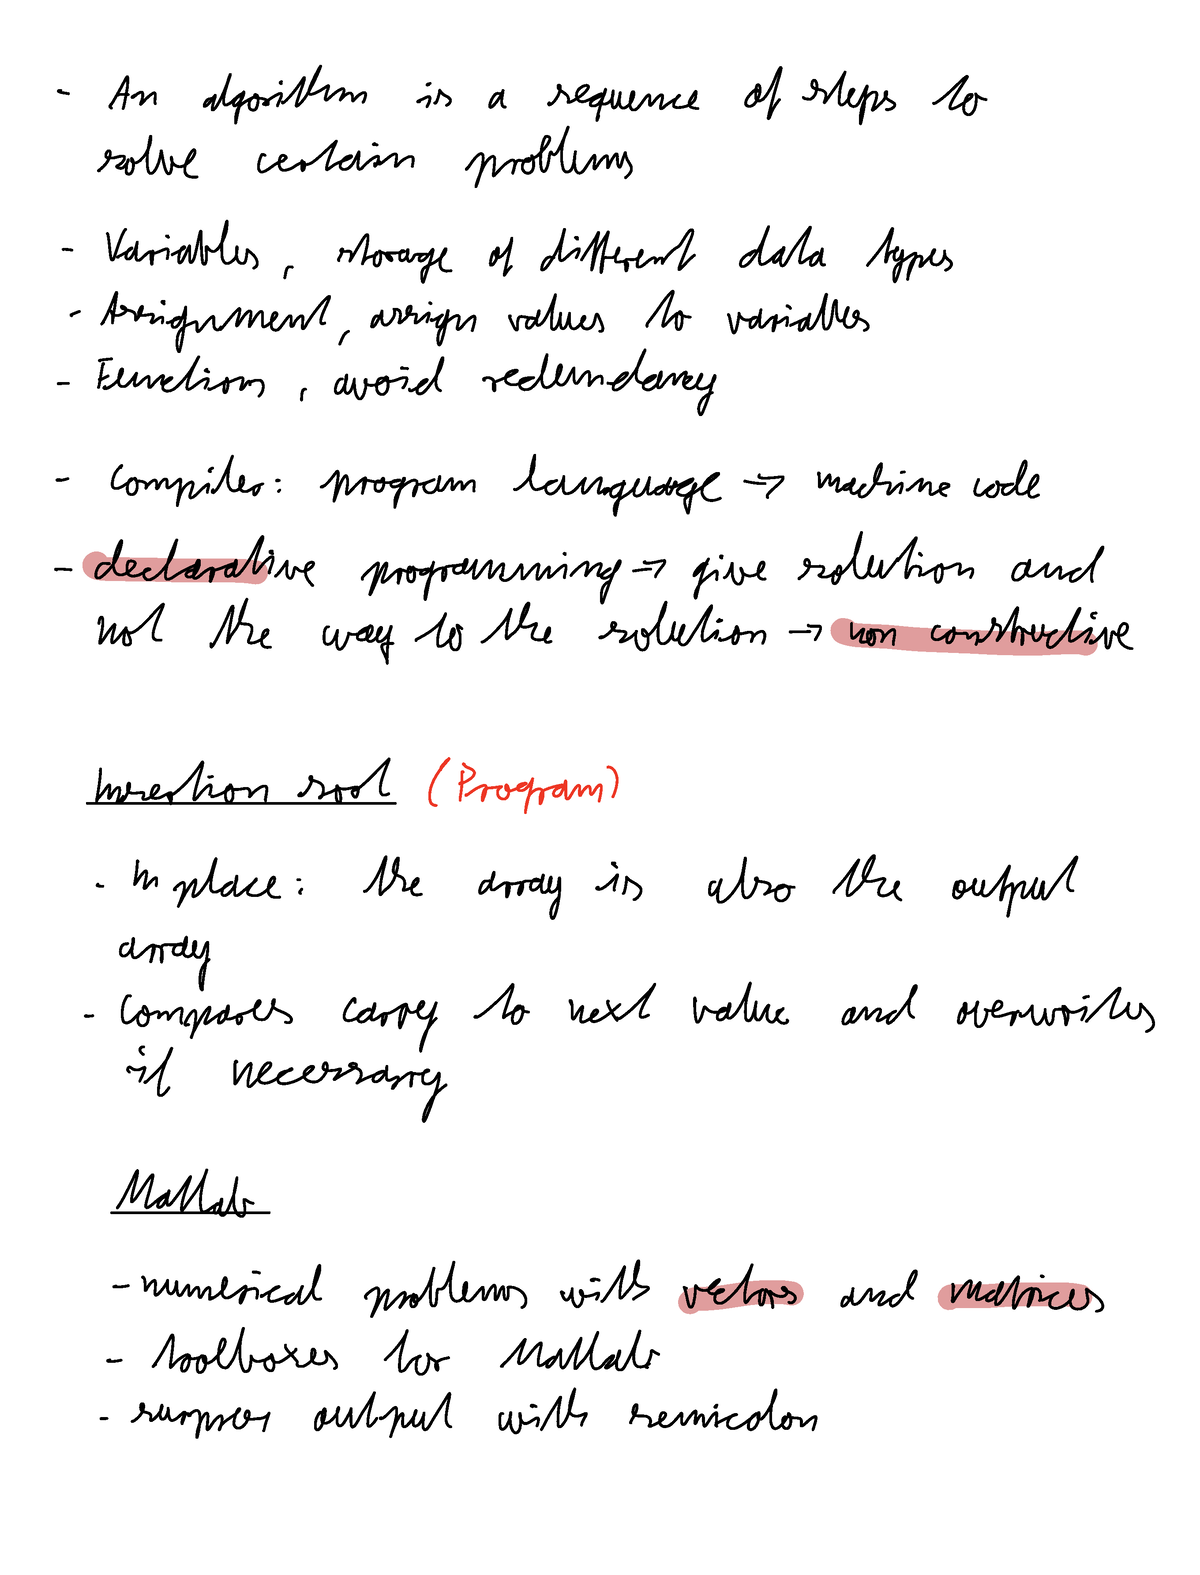 - An algorithm is a sequence of steps to
solve certain problems
- Variables, storage of different data types
- Assignment, assign values to variables
- Functions, avoid redundancy
- Compiler: program language → machine code
- declarative programming → give solution and
not the way to the solution → non constructive
Insertion sort (Program)
- In place: the array is also the output
array
- Compares carry to next value and overwrites
if necessary
Matlab
- numerical problems with vectors and matrices
- toolboxes for Matlab
- surpress output with semicolon